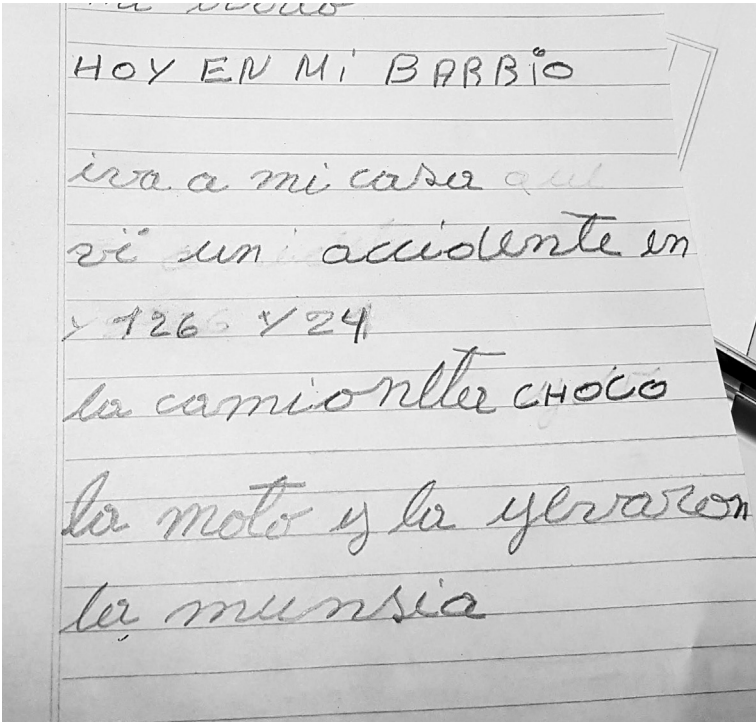 HOY EN Mi BARBiO
iva a mi casa que
vi un accidente en
y 126 Y 24
la camionetta CHOCO
la moto y la yevaron
la munsia